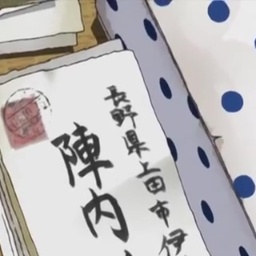 長野県上田市伊
陣内